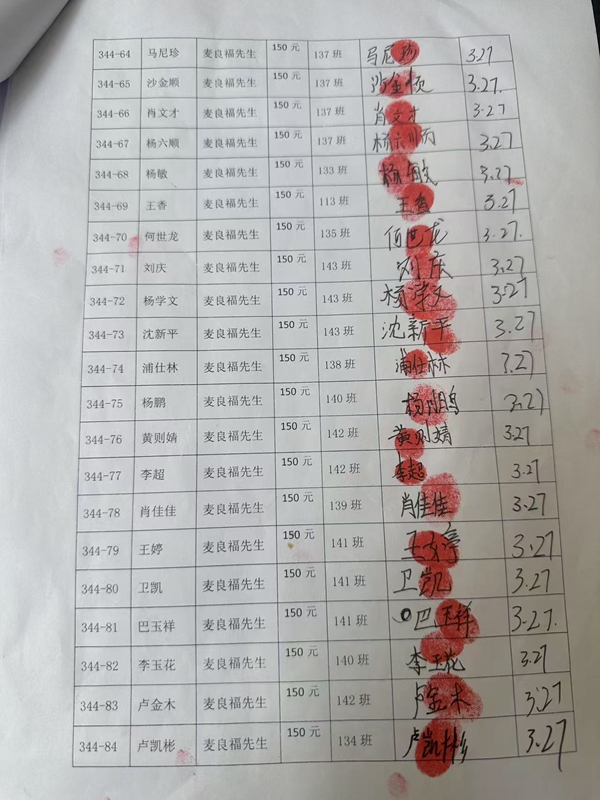 344-64 马尼珍 麦良福先生 150元 137班 马尼珍 3.27
344-65 沙金顺 麦良福先生 150元 137班 沙金顺 3.27.
344-66 肖文才 麦良福先生 150元 137班 肖文才 3.27
344-67 杨六顺 麦良福先生 150元 137班 杨六顺 3.27
344-68 杨敏 麦良福先生 150元 133班 杨敏 3.27
344-69 王香 麦良福先生 150元 113班 王香 3.27
344-70 何世龙 麦良福先生 150元 135班 何世龙 3.27.
344-71 刘庆 麦良福先生 150元 143班 刘庆 3.27
344-72 杨学文 麦良福先生 150元 143班 杨学文 3.27
344-73 沈新平 麦良福先生 150元 143班 沈新平 3.27
344-74 浦仕林 麦良福先生 150元 138班 浦仕林 3.27
344-75 杨鹏 麦良福先生 150元 140班 杨鹏 3.27
344-76 黄则婧 麦良福先生 150元 142班 黄则婧 3.27
344-77 李超 麦良福先生 150元 142班 李超 3.27
344-78 肖佳佳 麦良福先生 150元 139班 肖佳佳 3.27
344-79 王婷 麦良福先生 150元 141班 王婷 3.27
344-80 卫凯 麦良福先生 150元 141班 卫凯 3.27
344-81 巴玉祥 麦良福先生 150元 141班 巴玉祥 3.27.
344-82 李玉花 麦良福先生 150元 140班 李玉花 3.27
344-83 卢金木 麦良福先生 150元 142班 卢金木 3.27
344-84 卢凯彬 麦良福先生 150元 134班 卢凯彬 3.27